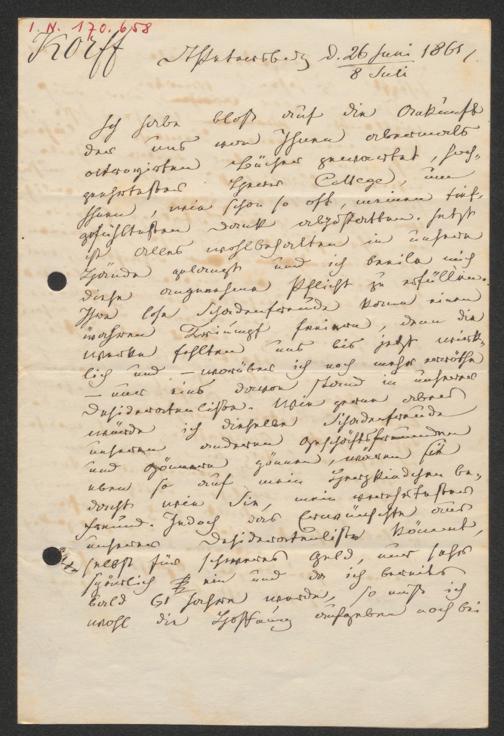 I. N. 170.658
Korff
St Petersburg d. 26 Juni 1861,
8 Juli
Ich habe bloß auf die Ankunft
der uns von Ihnen abermals
gewartet, hoch-
geehrtester Herr College, um
Ihnen, wie schon so oft, meinen tief-
gefühltesten Dank abzustatten. Jetzt
ist alles wohlbehalten in unsere
Hände gelangt und ich beeile mich
diese angenehme Pflicht zu erfüllen.
Ihre Schadenfreude kann einen
wahren Triumpf feiern, denn die
Werke fehlten uns bis jetzt wirk-
lich und – worüber ich noch mehr erröthe
– nur eins davon stand in unserer
Desideratenliste. Wie gerne aber
würde ich dieselbe Schadenfreude
unseren anderen Geschäftsfreunden
und Gönnern gönnen, wären sie
eben so auf mein Herzkindchen be-
dacht wie Sie, mein verehrtester
Freund. Jedoch das Erwünschte aus
unserer Desideratenliste kömmt,
selbst für schweres Geld, nur sehr
spärlich ein und da ich bereits
bald 61 Jahre werde, so muß ich
wohl die Hoffnung aufgeben noch bei